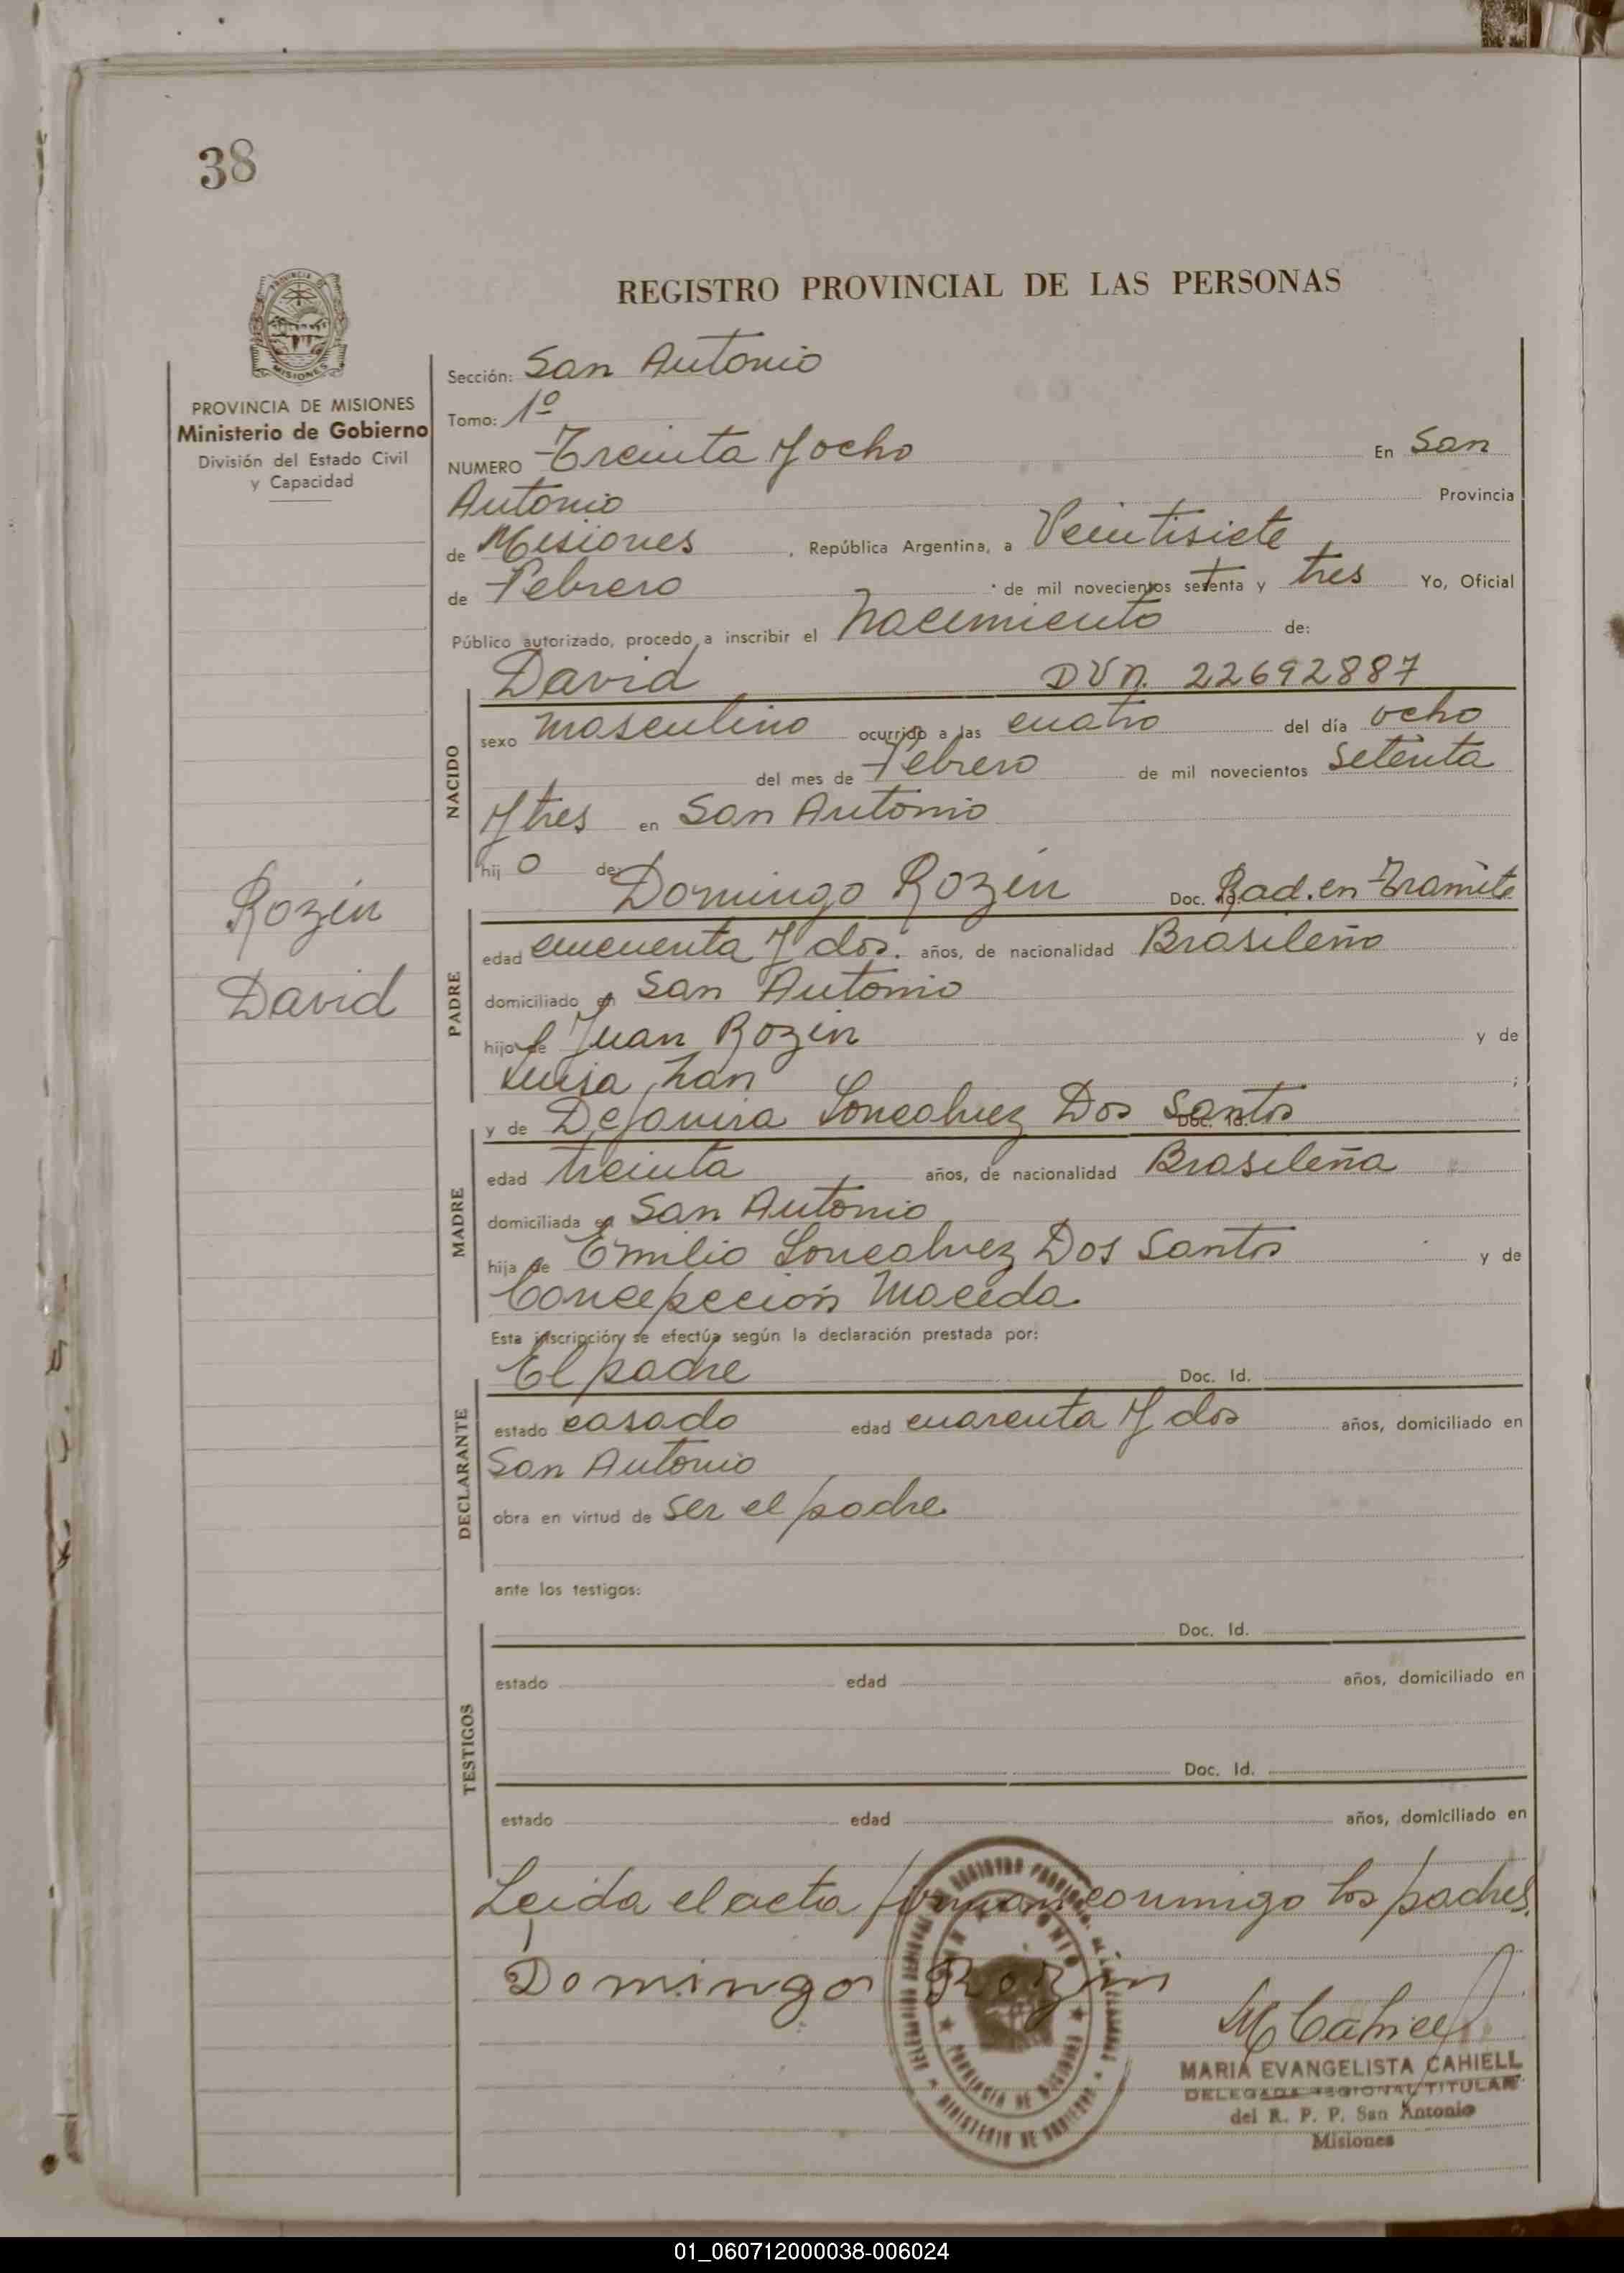 38
REGISTRO PROVINCIAL DE LAS PERSONAS
MISIONES
PROVINCIA DE MISIONES
Ministerio de Gobierno
División del Estado Civil
y Capacidad
Sección: San Antonio
Tomo: 1º
NUMERO Treinta y ocho En San
Antonio Provincia
de Misiones, República Argentina, a Veintisiete
de Febrero de mil novecientos setenta y tres Yo, Oficial
Público autorizado, procedo a inscribir el Nacimiento de:
David DUN. 22692887
NACIDO
sexo masculino ocurrido a las cuatro del día ocho
del mes de Febrero de mil novecientos setenta
y tres en San Antonio
hij o de: Domingo Rozin Doc. Id. Rad. en Tramite
Rozin
David
PADRE
edad cincuenta y dos. años, de nacionalidad Brasileño
domiciliado en San Antonio
hijo de Juan Rozin y de
Luisa Zan ;
y de Dejanira Goncalvez Dos Santos Doc. Id.
MADRE
edad treinta años, de nacionalidad Brasileña
domiciliada en San Antonio
hija de Emilio Goncalvez Dos Santos y de
Concepción Maceda.
Esta inscripción se efectúa según la declaración prestada por:
El padre Doc. Id.
DECLARANTE
estado casado edad cuarenta y dos años, domiciliado en
San Antonio
obra en virtud de ser el padre
ante los testigos:
TESTIGOS
Doc. Id.
estado edad años, domiciliado en
Doc. Id.
estado edad años, domiciliado en
Leida el acta firman conmigo los padres.
Domingo Rozin
M Cahiell
MARIA EVANGELISTA CAHIELL
DELEGADA REGIONAL TITULAR
del R. P. P. San Antonio
Misiones
PROVINCIA DE MISIONES
MINISTERIO DE GOBIERNO
01_060712000038-006024